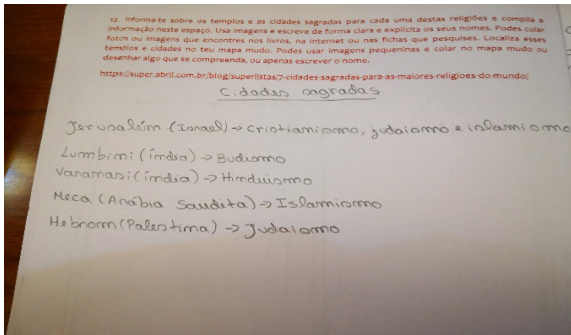 12. Informa-te sobre os templos e as cidades sagradas para cada uma destas religiões e compila a
informação neste espaço. Usa imagens e escreve de forma clara e explícita os seus nomes. Podes colar
fotos ou imagens que encontres nos livros, na internet ou nas fichas que pesquises. Localiza esses
templos e cidades no teu mapa mudo. Podes usar imagens pequeninas e colar no mapa mudo ou
desenhar algo que se compreenda, ou apenas escrever o nome.
https://super.abril.com.br/blog/superlistas/7-cidades-sagradas-para-as-maiores-religioes-do-mundo/
Cidades sagradas
Jerusalém (Israel) → Cristianismo, judaismo e islamismo
Lumbini (índia) → Budismo
Varanasi (índia) → Hinduismo
Meca (Arábia Saudita) → Islamismo
Hebrom (Palestina) → Judaismo